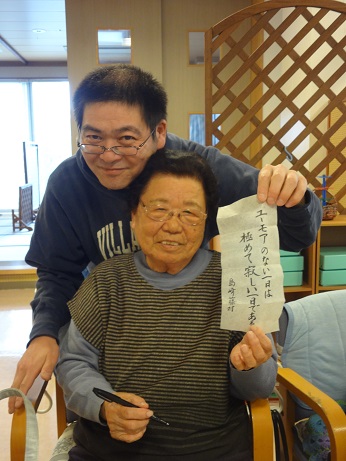 ユーモアのない一日は
極めて寂しい一日である
島崎藤村
VILLA